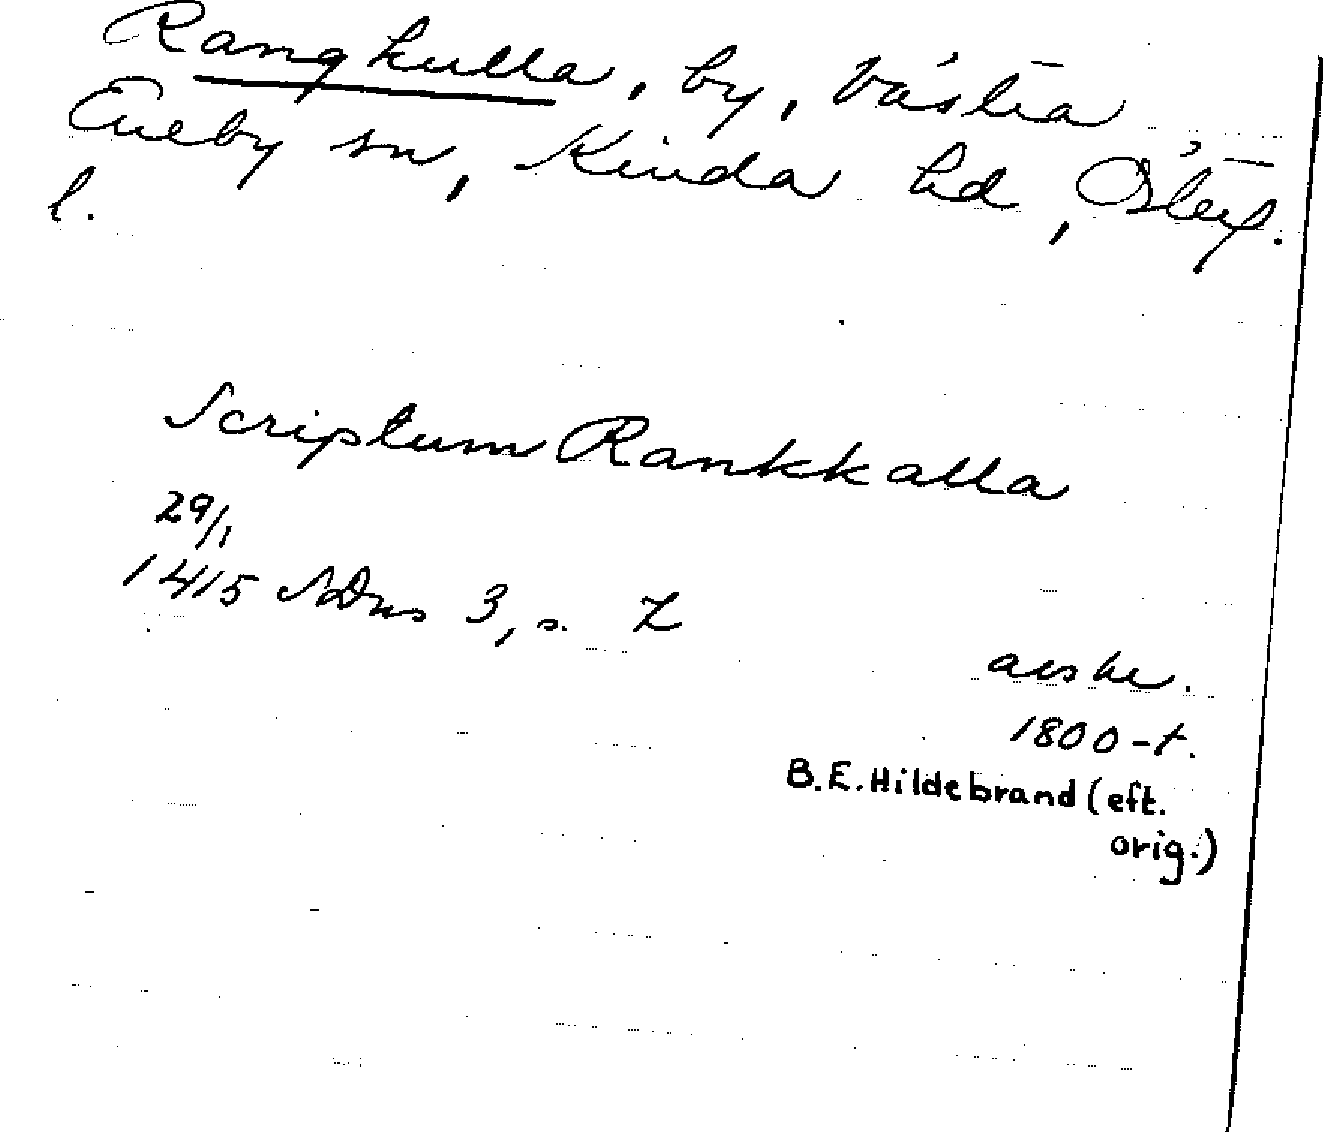 Rangkulla, by, Västra
Eneby sn, Kinda hd, Österg.
l.
Scriptum Rankkalla
29/1
1415 SDns 3, s. 7
avskr.
1800-t.
B.E.Hildebrand (eft.
orig.)